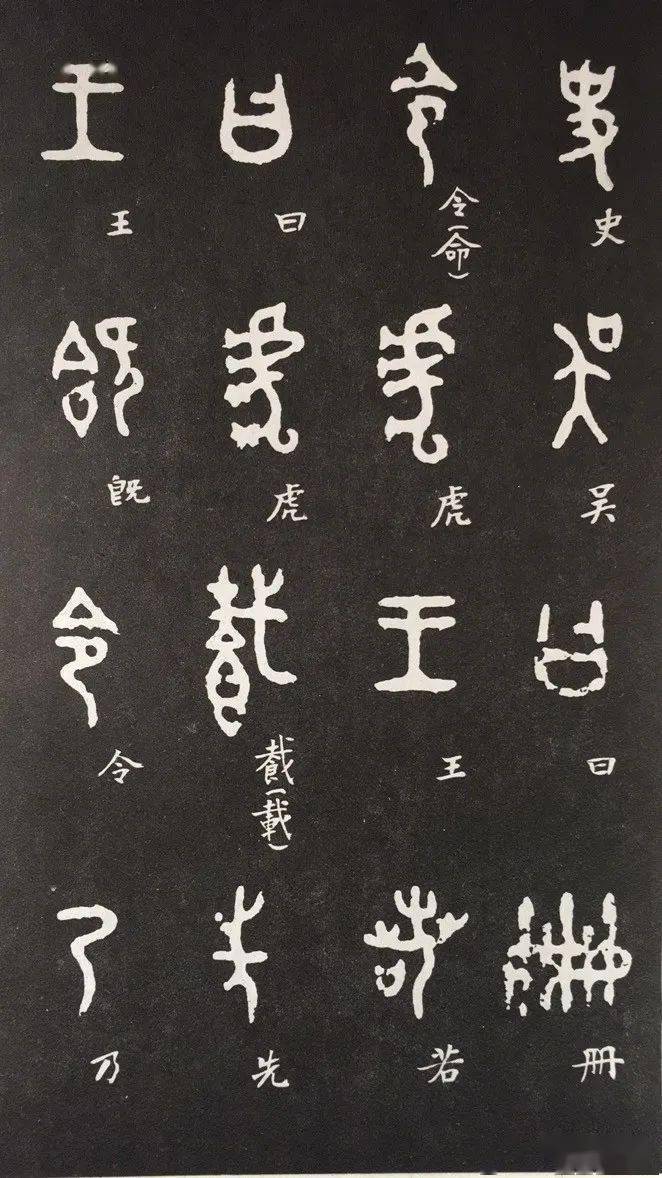 史吴曰册
令(命)虎王若
曰虎𩛥(載)先
王既令乃